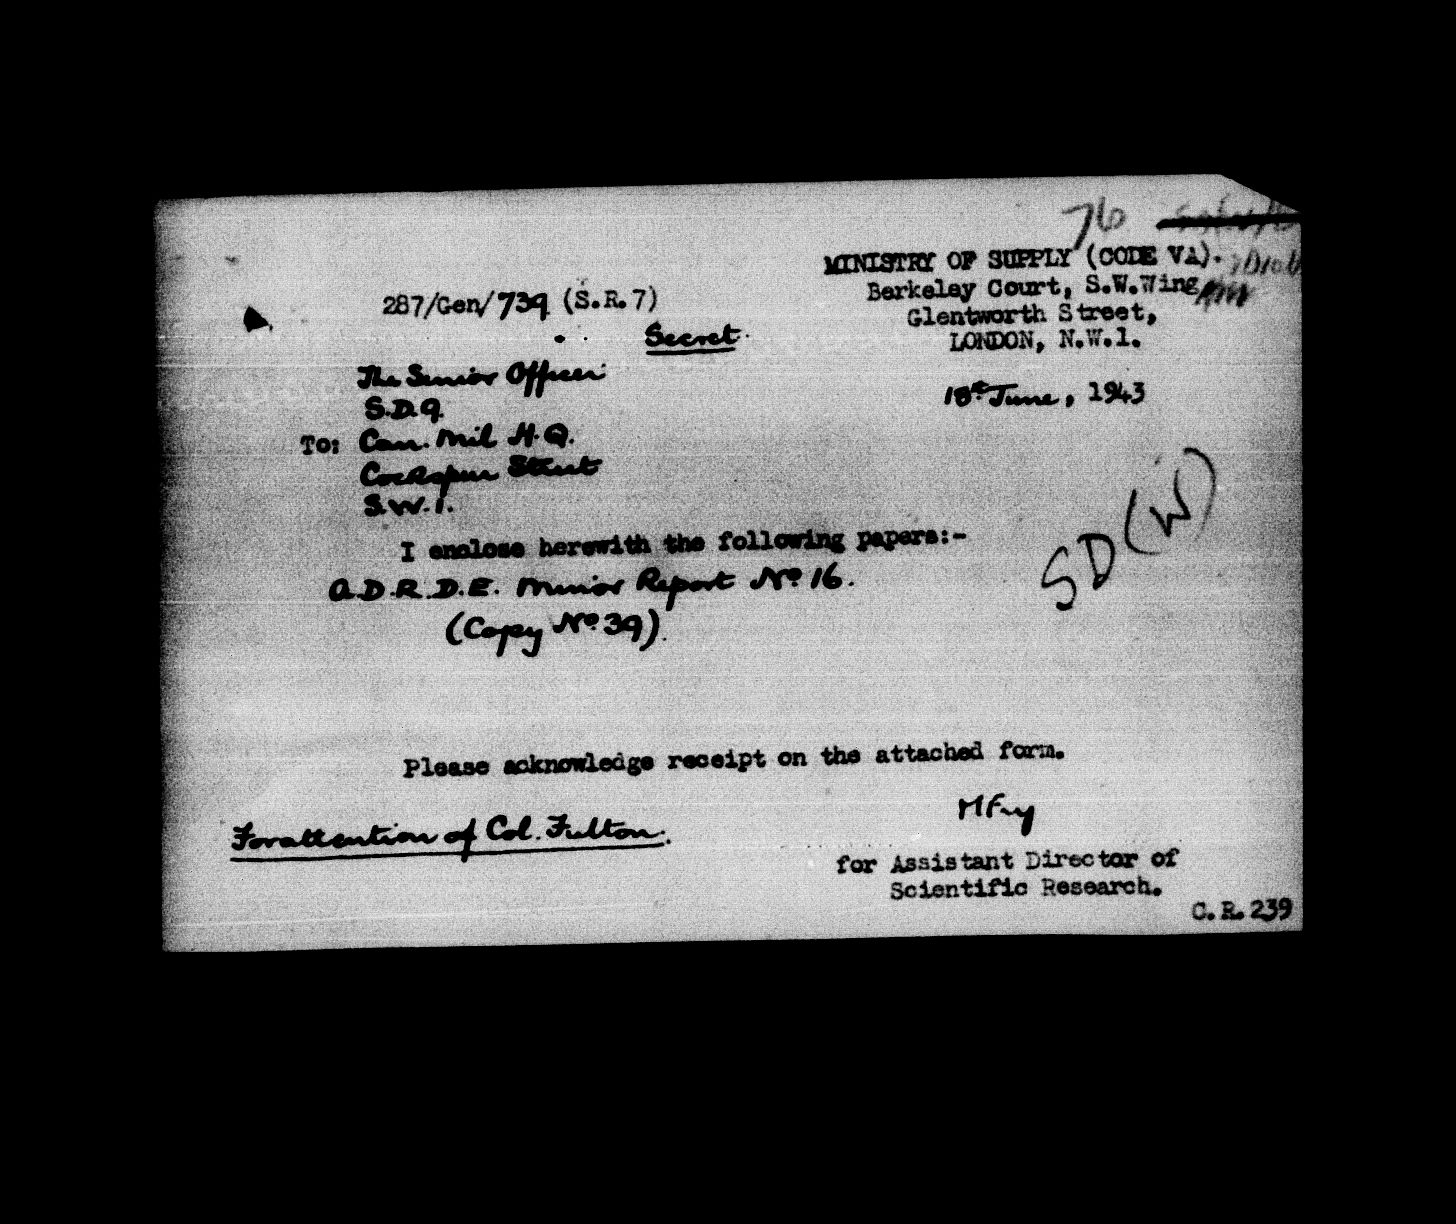 76
MINISTRY OF SUPPLY (CODE VA).
Berkeley Court, S.W.Wing
Glentworth Street,
LONDON, N.W.1.
287/Gen/739 (S.R.7)
Secret
18th June, 1943
The Senior Officer
S.D.9.
To: Can. Mil H.Q.
Cockspur Street
S.W.1.
SD(W)
I enclose herewith the following papers:-
A.D.R.D.E. Minor Report No 16.
(Copy No 39).
Please acknowledge receipt on the attached form.
M Fry
For attention of Col. Fulton.
for Assistant Director of
Scientific Research.
C.R.239